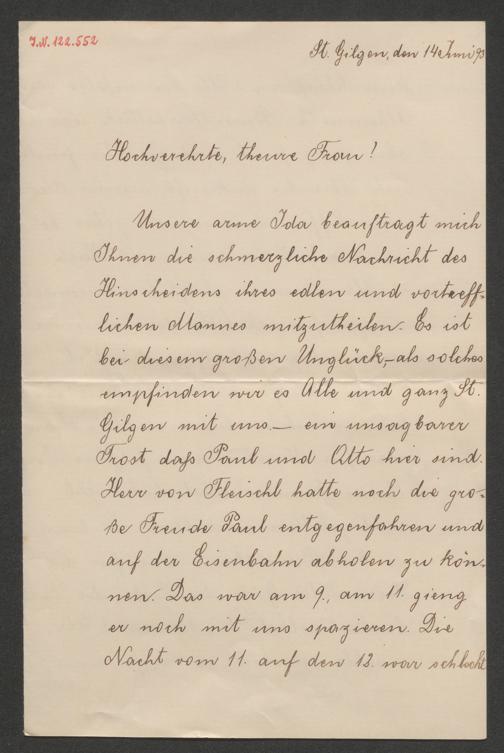 J.N. 122.552
St. Gilgen, den 14 Juni 93
Hochverehrte, theure Frau!
Unsere arme Ida beauftragt mich
Ihnen die schmerzliche Nachricht des
Hinscheidens ihres edlen und vortreff-
lichen Mannes mitzutheilen. Es ist
bei diesem großen Unglück,–als solches
empfinden wir es Alle und ganz St.
Gilgen mit uns – ein unsagbarer
Trost daß Paul und Otto hier sind.
Herr von Fleischl hatte noch die gro-
ße Freude Paul entgegenfahren und
auf der Eisenbahn abholen zu kön-
nen. Das war am 9., am 11. gieng
er noch mit uns spazieren. Die
Nacht vom 11. auf den 12. war schlecht